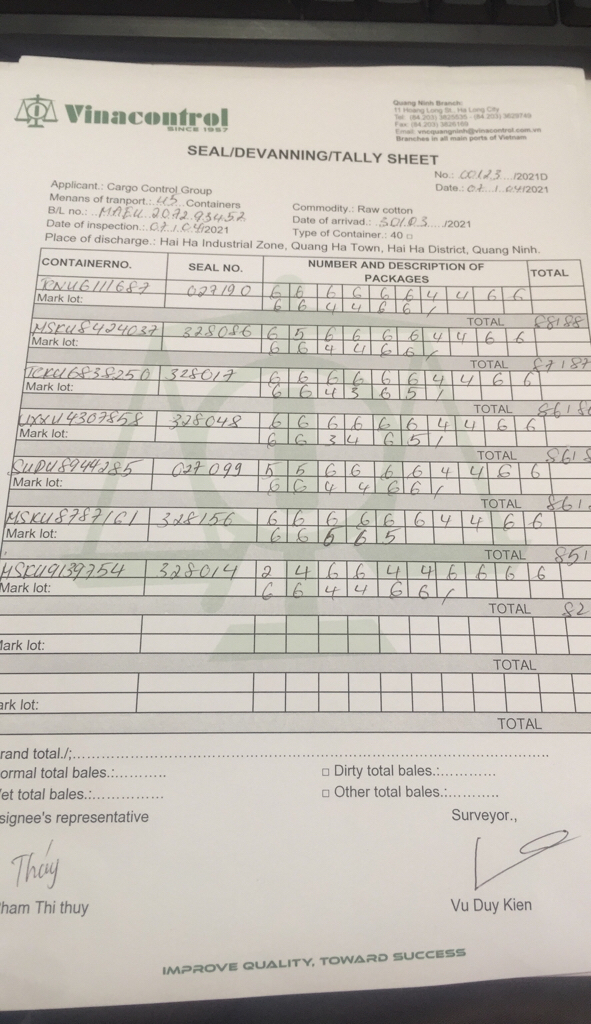 Vinacontrol
SINCE 1957
Quang Ninh Branch:
11 Hoang Long St., Ha Long City
Branches in all main ports of Vietnam
SEAL/DEVANNING/TALLY SHEET
No.: 00123.../2021D
Date.: 02.../04/2021
Applicant.: Cargo Control Group
Menans of tranport.: 45..Containers
Commodity.: Raw cotton
B/L no.: ..MAEU 207293452
Date of arrivad.: 30/03..../2021
Date of inspection.: 02../04/2021
Type of Container.: 40 □
Place of discharge.: Hai Ha Industrial Zone, Quang Ha Town, Hai Ha District, Quang Ninh.
CONTAINERNO. SEAL NO. NUMBER AND DESCRIPTION OF PACKAGES TOTAL
027190 6 6 6 6 6 6 4 4 6 6
Mark lot: 6 6 4 4 6 6 /
TOTAL 88188
MSKU8424037 328086 6 5 6 6 6 6 4 4 6 6
Mark lot: 6 6 4 4 6 6 /
TOTAL 87187
328017 6 6 6 6 6 6 4 4 6 6
Mark lot: 6 6 4 3 6 5 /
TOTAL
328048 6 6 6 6 6 6 4 4 6 6
Mark lot: 6 6 3 4 6 5 /
TOTAL
SUDU8944285 027099 5 5 6 6 6 6 4 4 6 6
Mark lot: 6 6 4 4 6 6 /
TOTAL
MSKU8787161 328156 6 6 6 6 6 6 4 4 6 6
Mark lot: 6 6 6 6 5
TOTAL 851
MSKU9139754 328014 2 4 6 6 4 4 6 6 6 6
Mark lot: 6 6 4 4 6 6 /
TOTAL 82
ark lot:
TOTAL
ark lot:
TOTAL
rand total./:
ormal total bales.:
□ Dirty total bales.:
et total bales.:
□ Other total bales.:
signee's representative
Surveyor.,
Thúy
ham Thi thuy
Vu Duy Kien
IMPROVE QUALITY, TOWARD SUCCESS